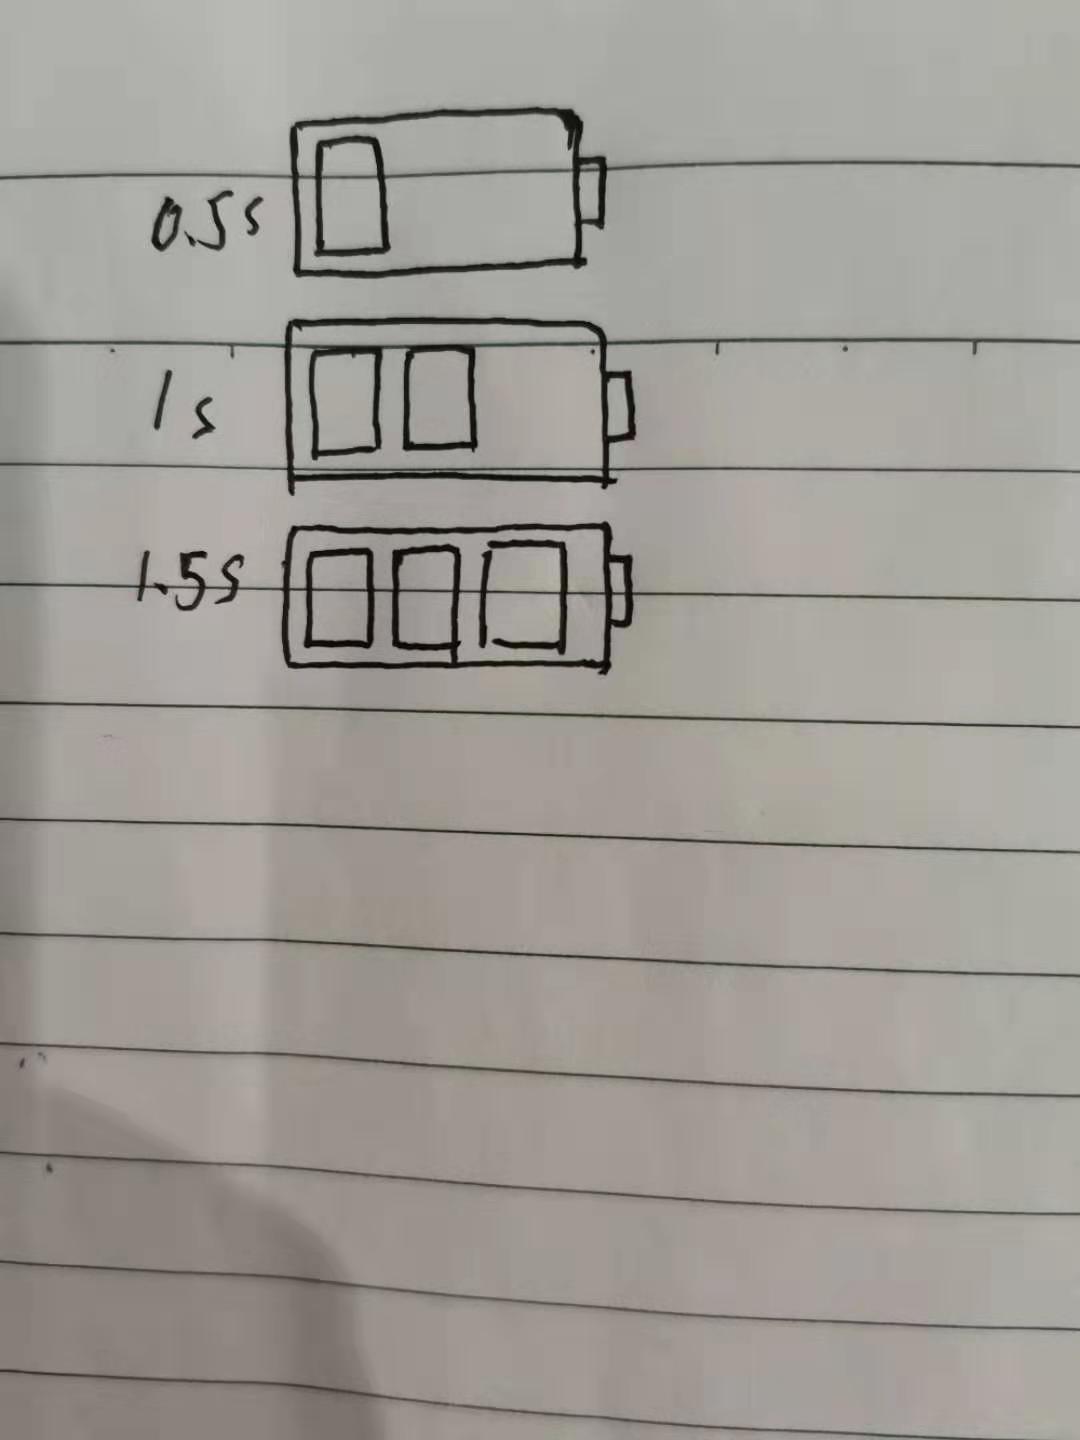 0.5s
1s
1.5s